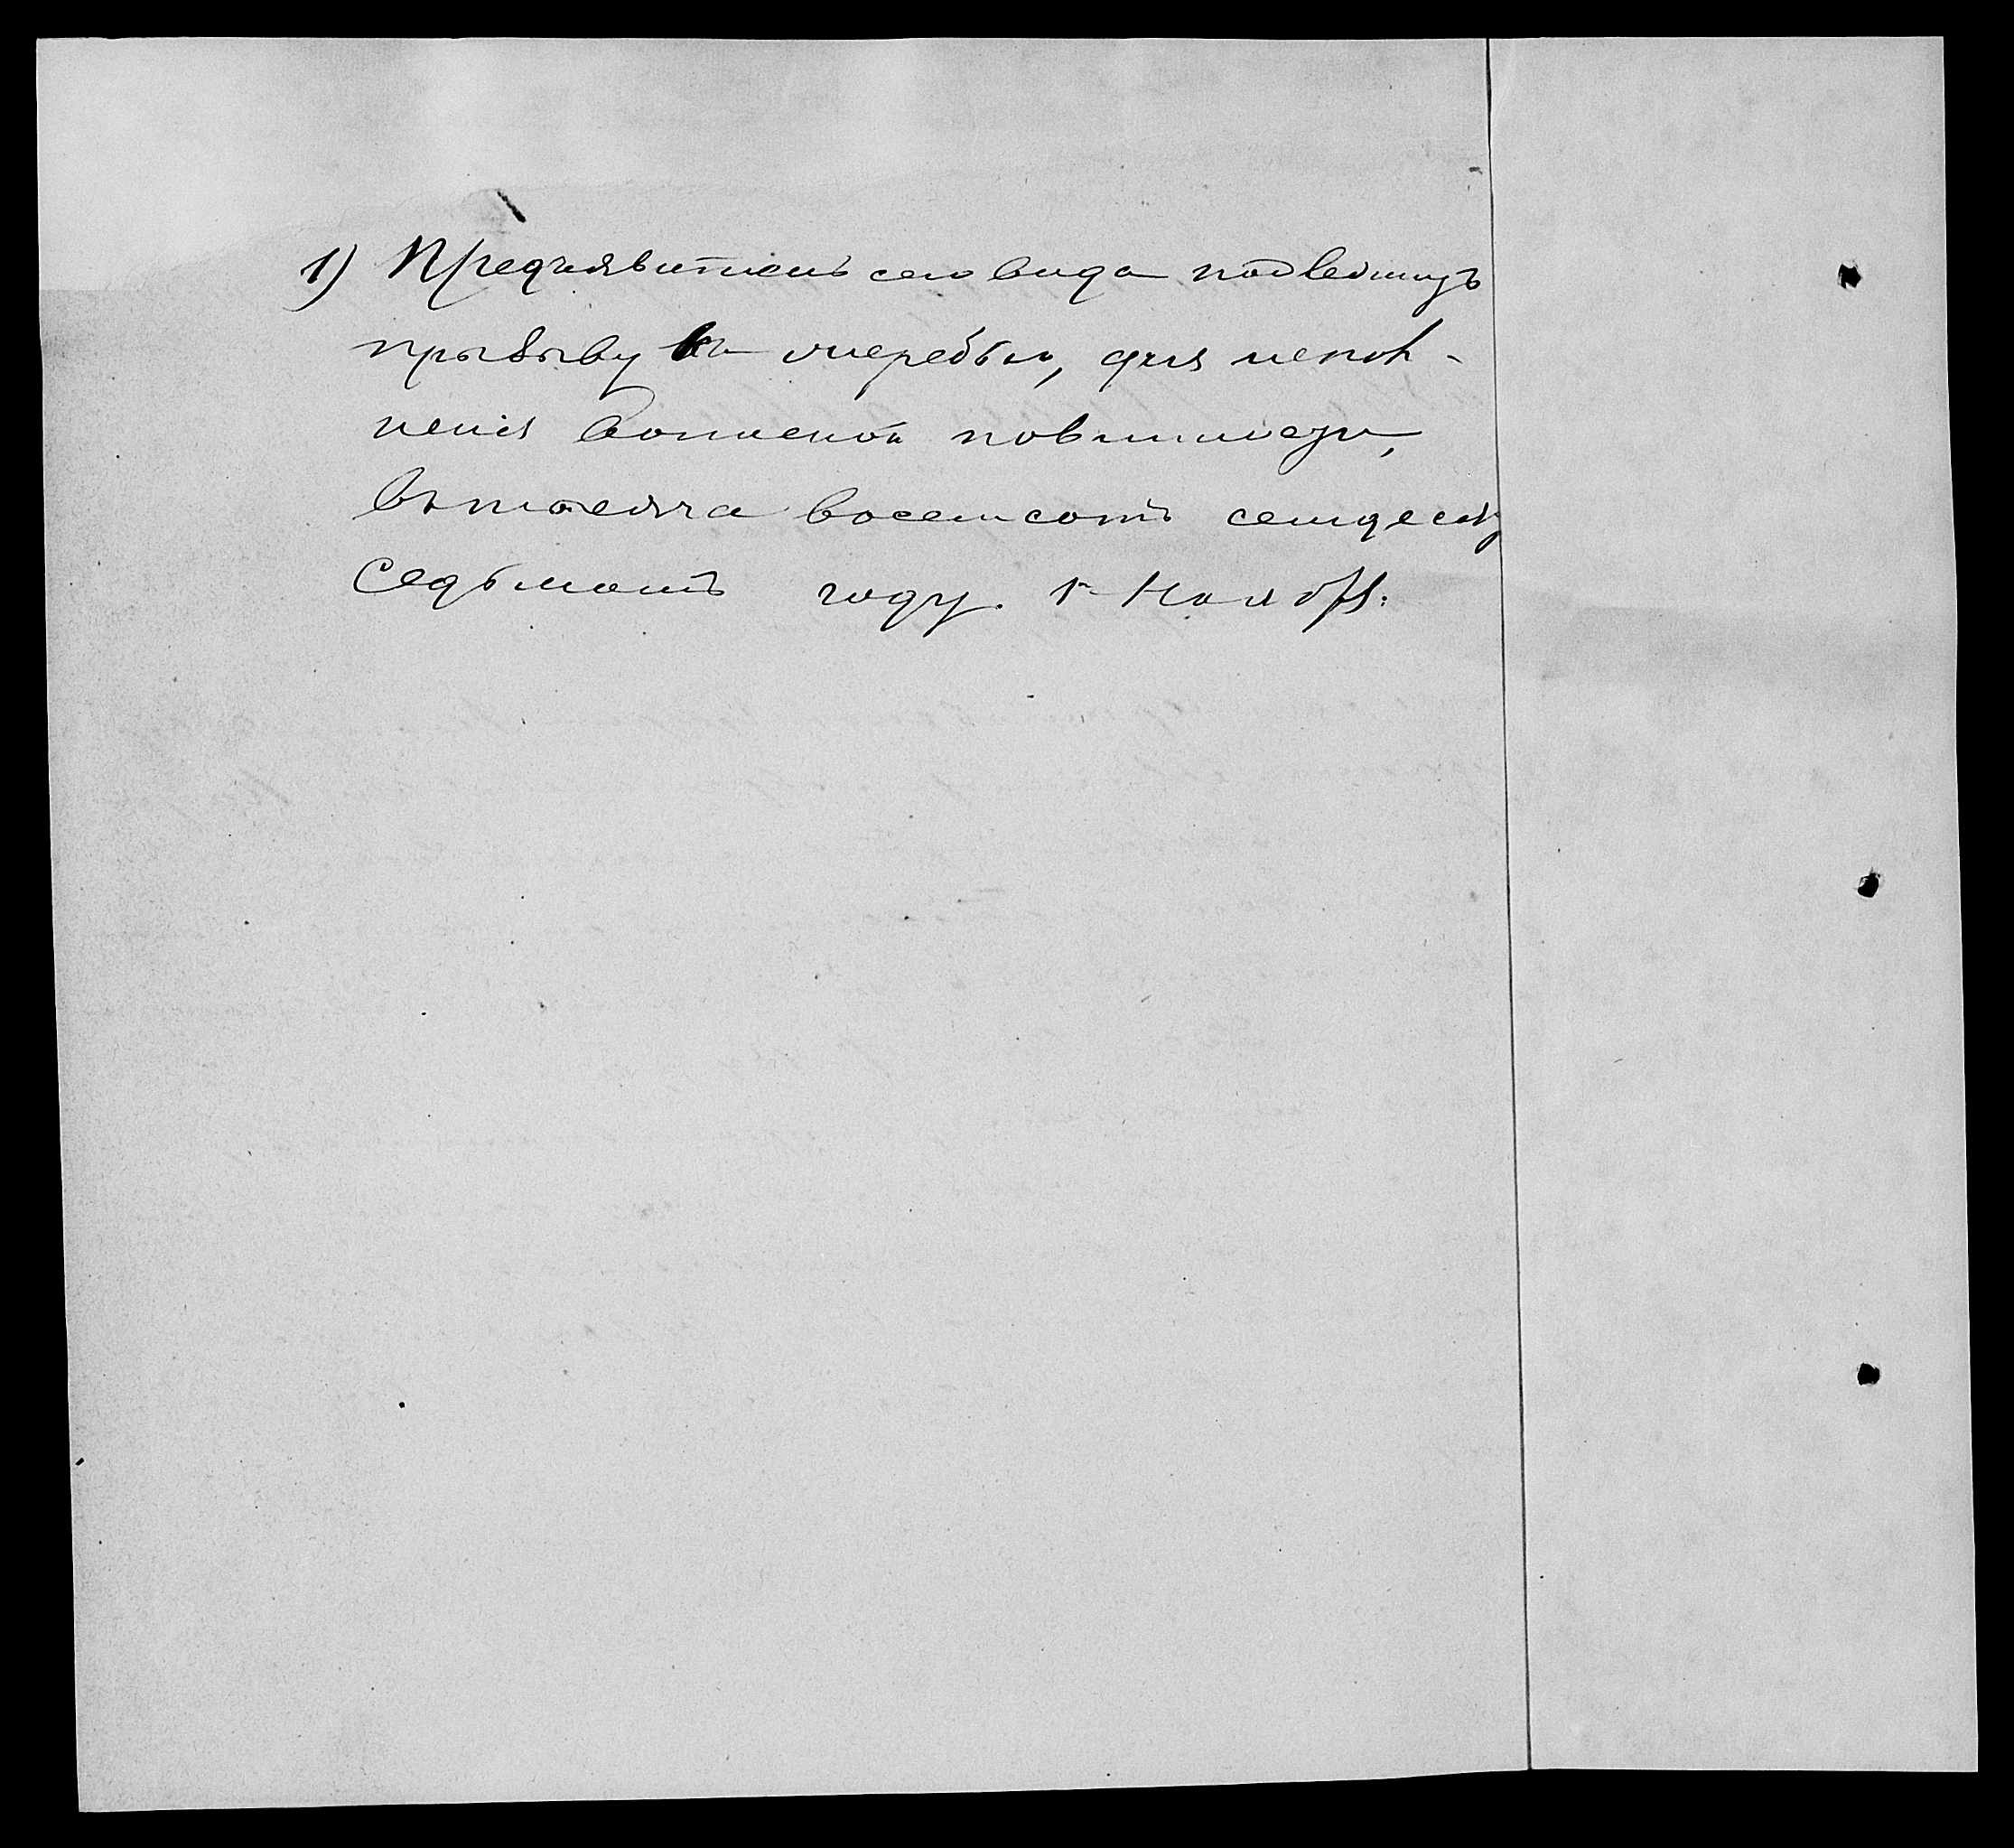 1) Предъявитель сего вида подлежитъ
призыву къ жеребью, для испол-
ненія воинской повинности,
въ тысяча восемсотъ семдесят
седьмомъ году. 1го Нояб: